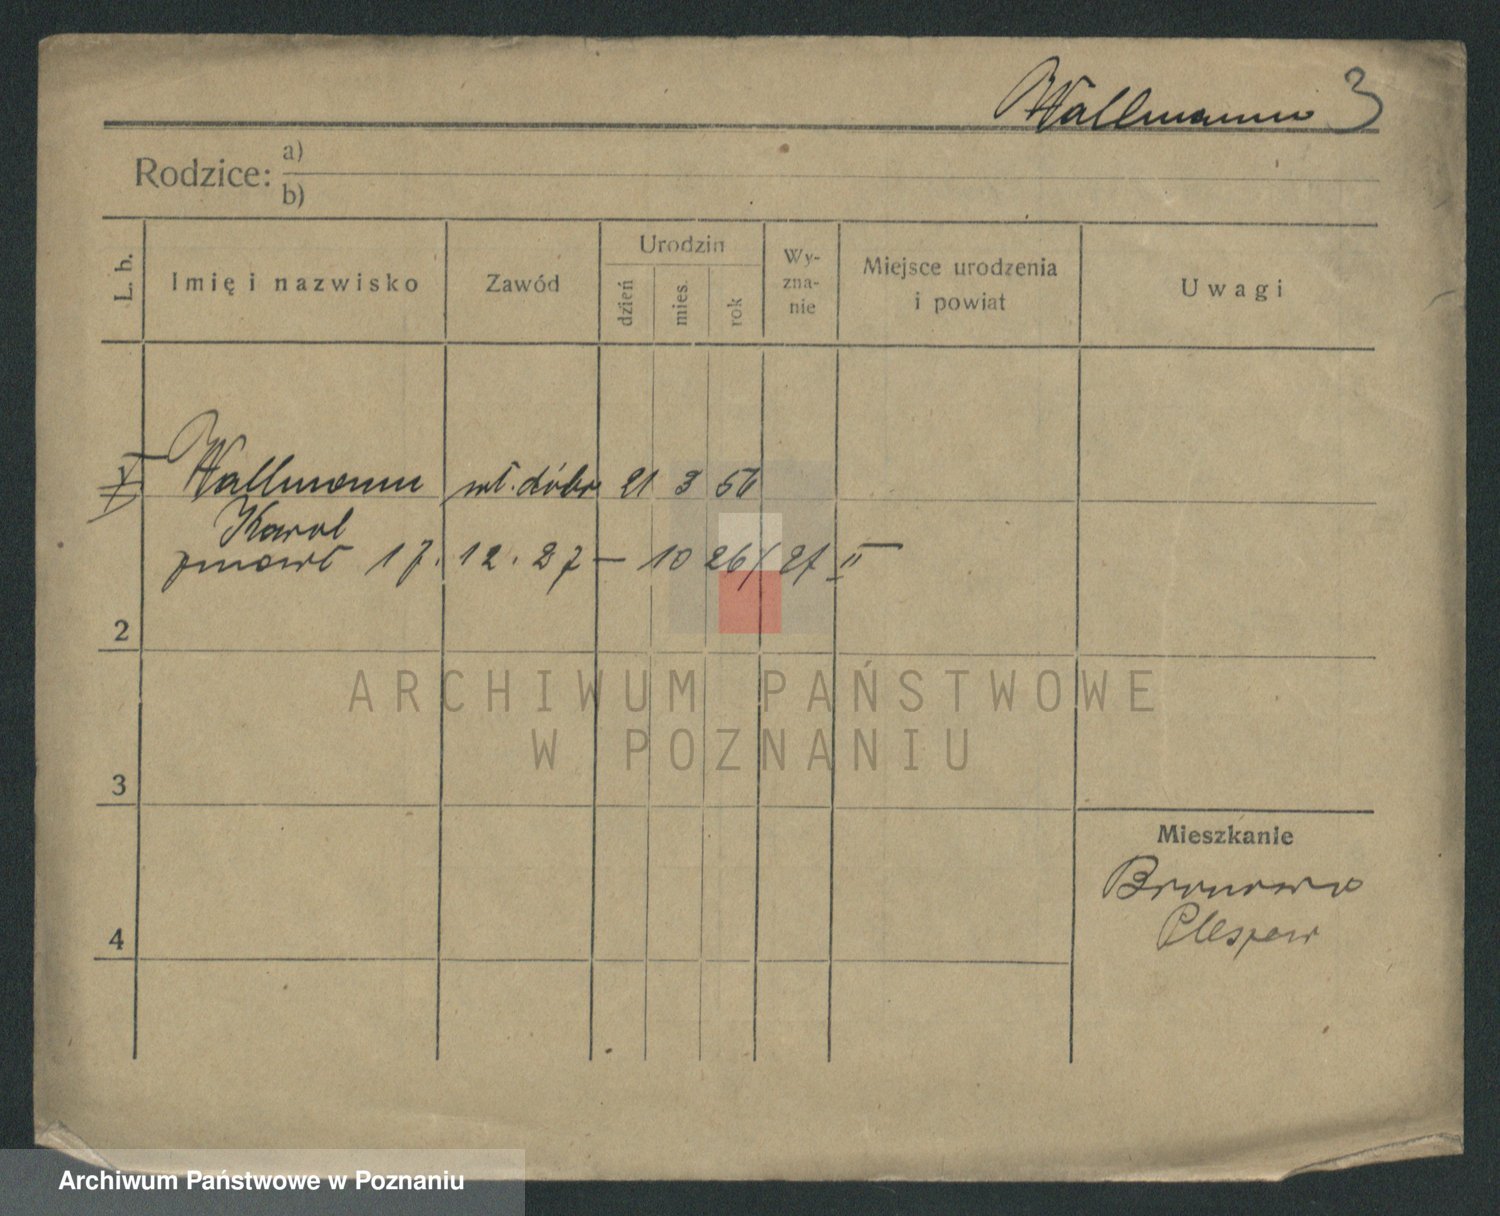 Wallmann 3
Rodzice: a)
b)
L. b. Imię i nazwisko Zawód Urodzin dzień mies. rok Wyznanie Miejsce urodzenia i powiat Uwagi
Wallmann wł. dóbr 21 3 56
Karol
zmarł 17. 12. 27 — 10 26/27 II
2
3
4
Mieszkanie
Bronowo
Pleszew
ARCHIWUM PAŃSTWOWE
W POZNANIU
Archiwum Państwowe w Poznaniu